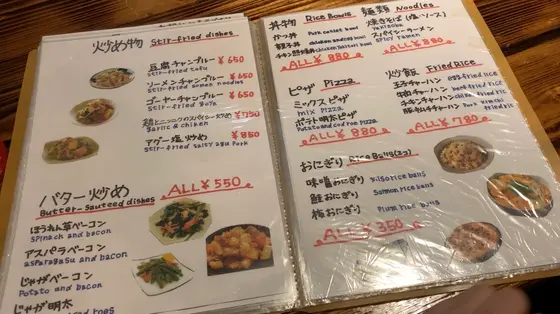 炒め物 Stir-fried dishes
豆腐チャンプルー ¥650
Stir-fried tofu
ソーメンチャンプルー ¥650
Stir-fried somen noodles
ゴーヤーチャンプルー ¥650
Stir-fried Goya
鶏とニンニクのスパイシー炒め ¥750
Garlic & chicken
アグー塩炒め ¥850
Stir-fried salty agu Pork
バター炒め ALL ¥550
Butter-Sauteed dishes
ほうれん草ベーコン
Spinach and bacon
アスパラベーコン
asparagasu and bacon
じゃがベーコン
Potato and bacon
じゃが明太
丼物 Rice Bowls
かつ丼 Pork cutlet bowl
親子丼 chicken and egg bowl
ALL ¥880
麺類 Noodles
焼きそば(塩・ソース)
Yakisoba
スパイシーラーメン
Spicy Ramen
ALL ¥880
ピザ Pizza
ミックスピザ
mix Pizza
ポテト明太ピザ
Potato and cod roe Pizza
ALL ¥880
炒飯 Fried Rice
玉子チャーハン egg fried rice
牛肉チャーハン beef fried rice
チキンチャーハン chicken fried rice
豚キムチチャーハン Pork kimchi fried rice
ALL ¥780
おにぎり Rice Balls(2コ)
味噌おにぎり Miso rice bans
鮭おにぎり Salmon rice bans
梅おにぎり Plum rice bans
ALL ¥350